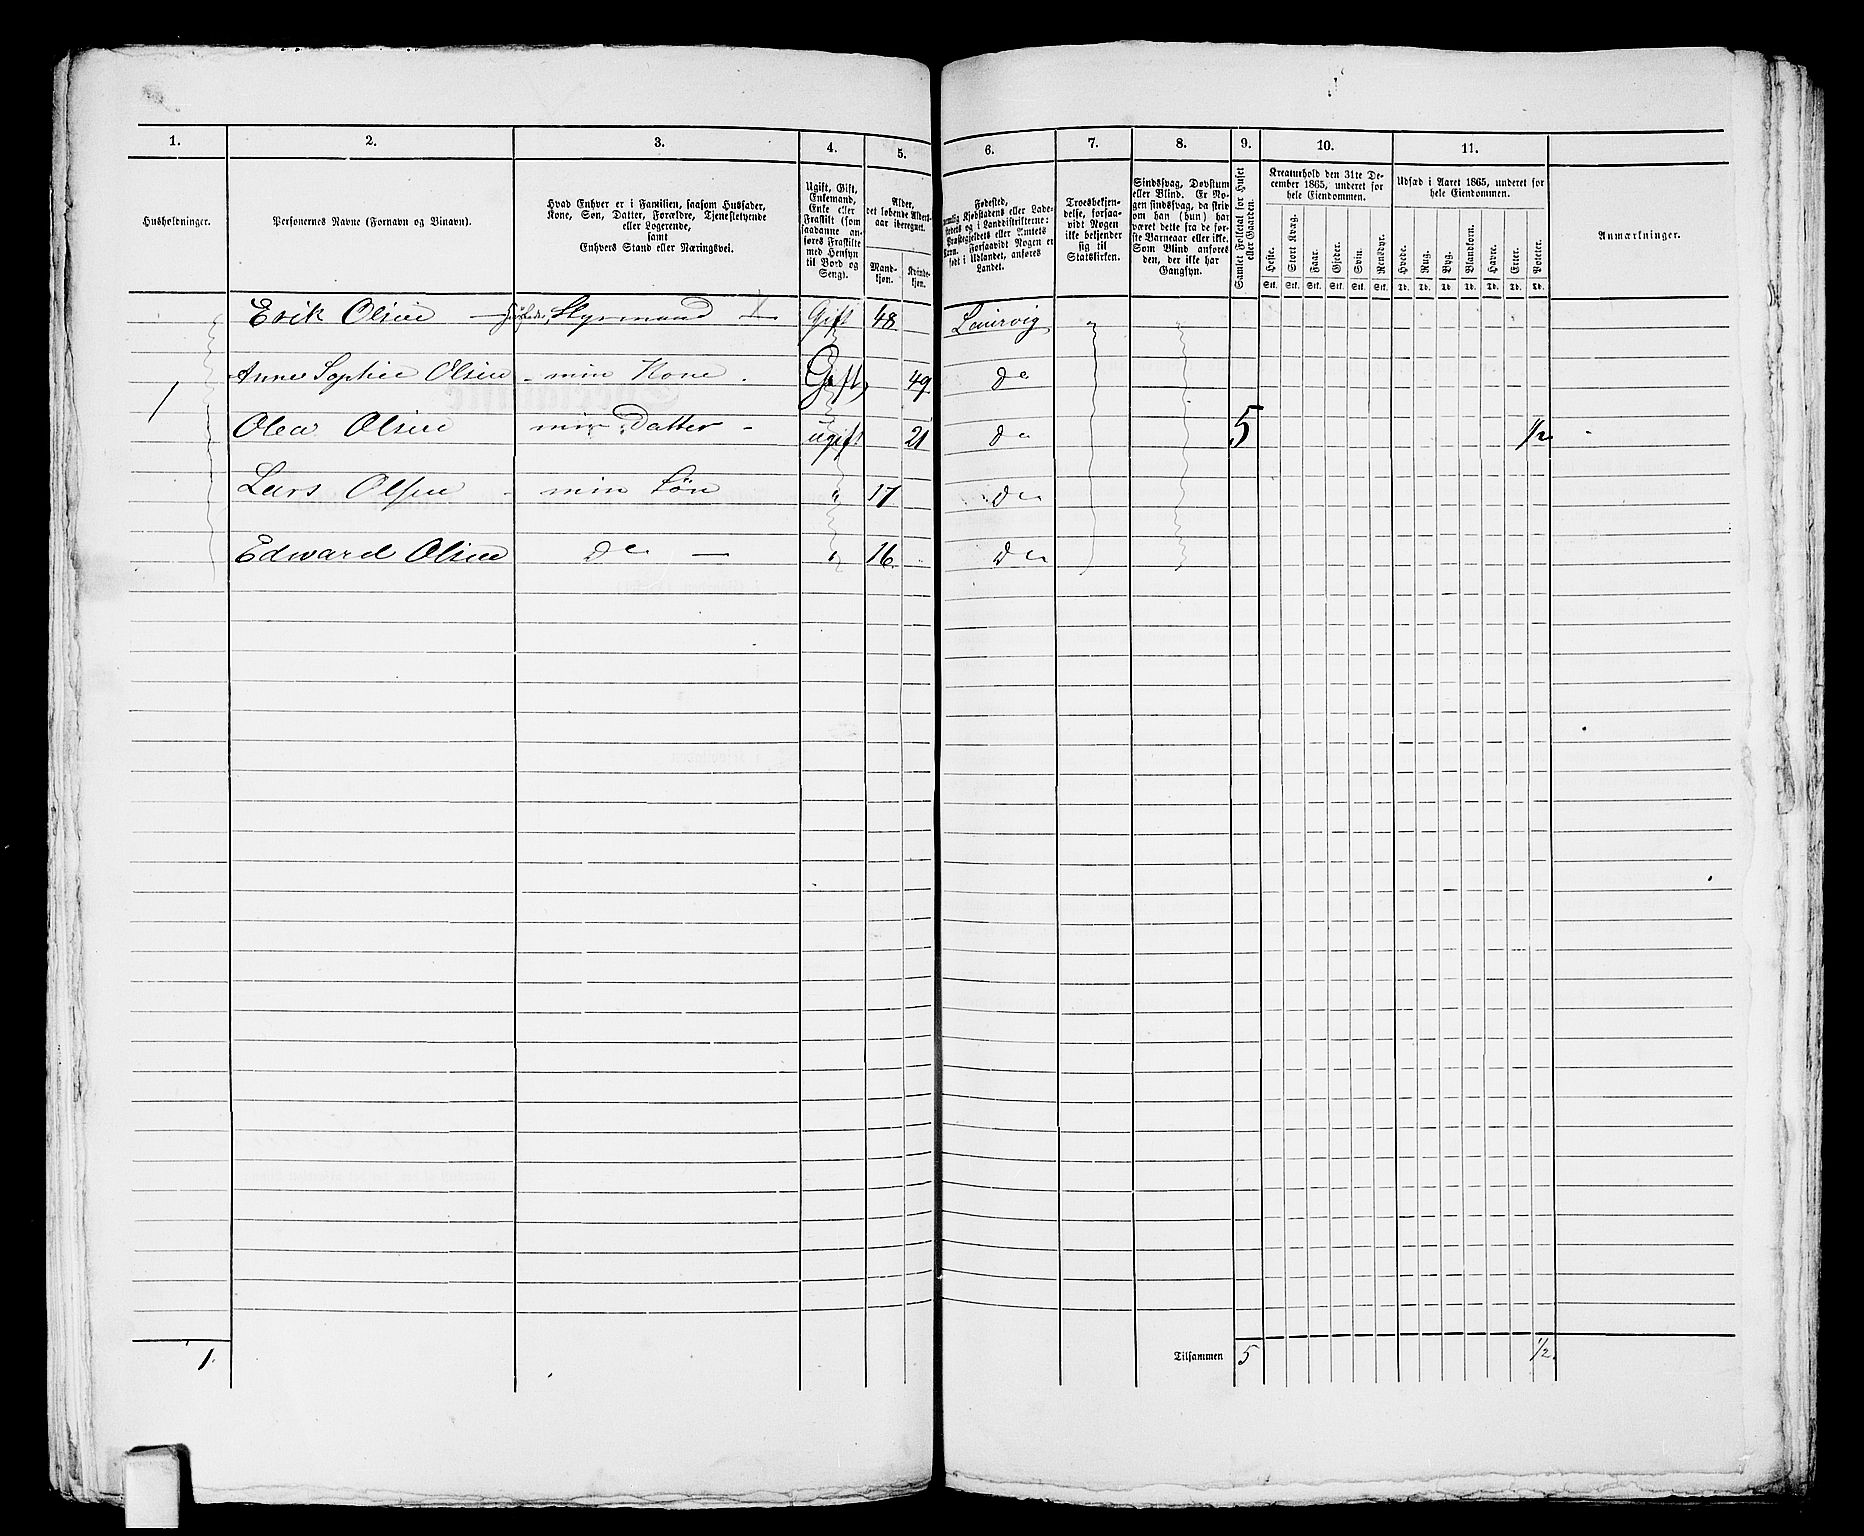 1. 2. 3. 4. 5. 6. 7. 8. 9. 10. 11.
Husholdninger.
Personernes Navne (Fornavn og Binavn).
Hvad Enhver er i Familien, saasom Husfader,
Kone, Søn, Datter, Forældre, Tjenestetyende
eller Logerende,
samt
Enhvers Stand eller Næringsvei.
Ugift, Gift,
Enkemand,
Enke eller
Fraskilt (som
saadanne an-
føres Fraskilte
med Hensyn
til Bord og
Seng).
Alder,
det løbende Alders-
aar iberegnet.
Mand-
kjøn.
Kvinde-
kjøn.
Fødested,
nemlig Kjøbstadens eller Lade-
stedets og i Landdistrikterne:
Præstegjeldets eller Amtets
Navn. Forsaavidt Nogen er
født i Udlandet, anføres
Landet.
Troesbekjen-
delse, forsaa-
vidt Nogen
ikke bekjender
sig til
Statskirken.
Sindssvag, Døvstum
eller Blind. Er No-
gen sindssvag, da skriv
om han (hun) har
været dette fra de før-
ste Barneaar eller ikke.
Som Blind anføres
den, der ikke har
Gangsyn.
Samlet Folketal for Huset
eller Gaarden.
Kreaturhold den 31te De-
cember 1865, underet for
hele Eiendommen.
Heste. Stort Kvæg. Faar. Gjeder. Svin. Rensdyr.
Stk. Stk. Stk. Stk. Stk. Stk.
Udsæd i Aaret 1865, underet for
hele Eiendommen.
Hvede. Rug. Byg. Blandkorn. Havre. Erter. Poteter.
Td. Td. Td. Td. Td. Td. Td.
Anmærkninger.
Erik Olsen Styrmand Gift 48
Anne Sophie Olsen min Kone Gift 49 do
1 Olea Olsen min Datter ugift 21 do 5 1/2
Lars Olsen min Søn " 17 do
Edward Olsen do " 16 do
1. Tilsammen 5 1/2.